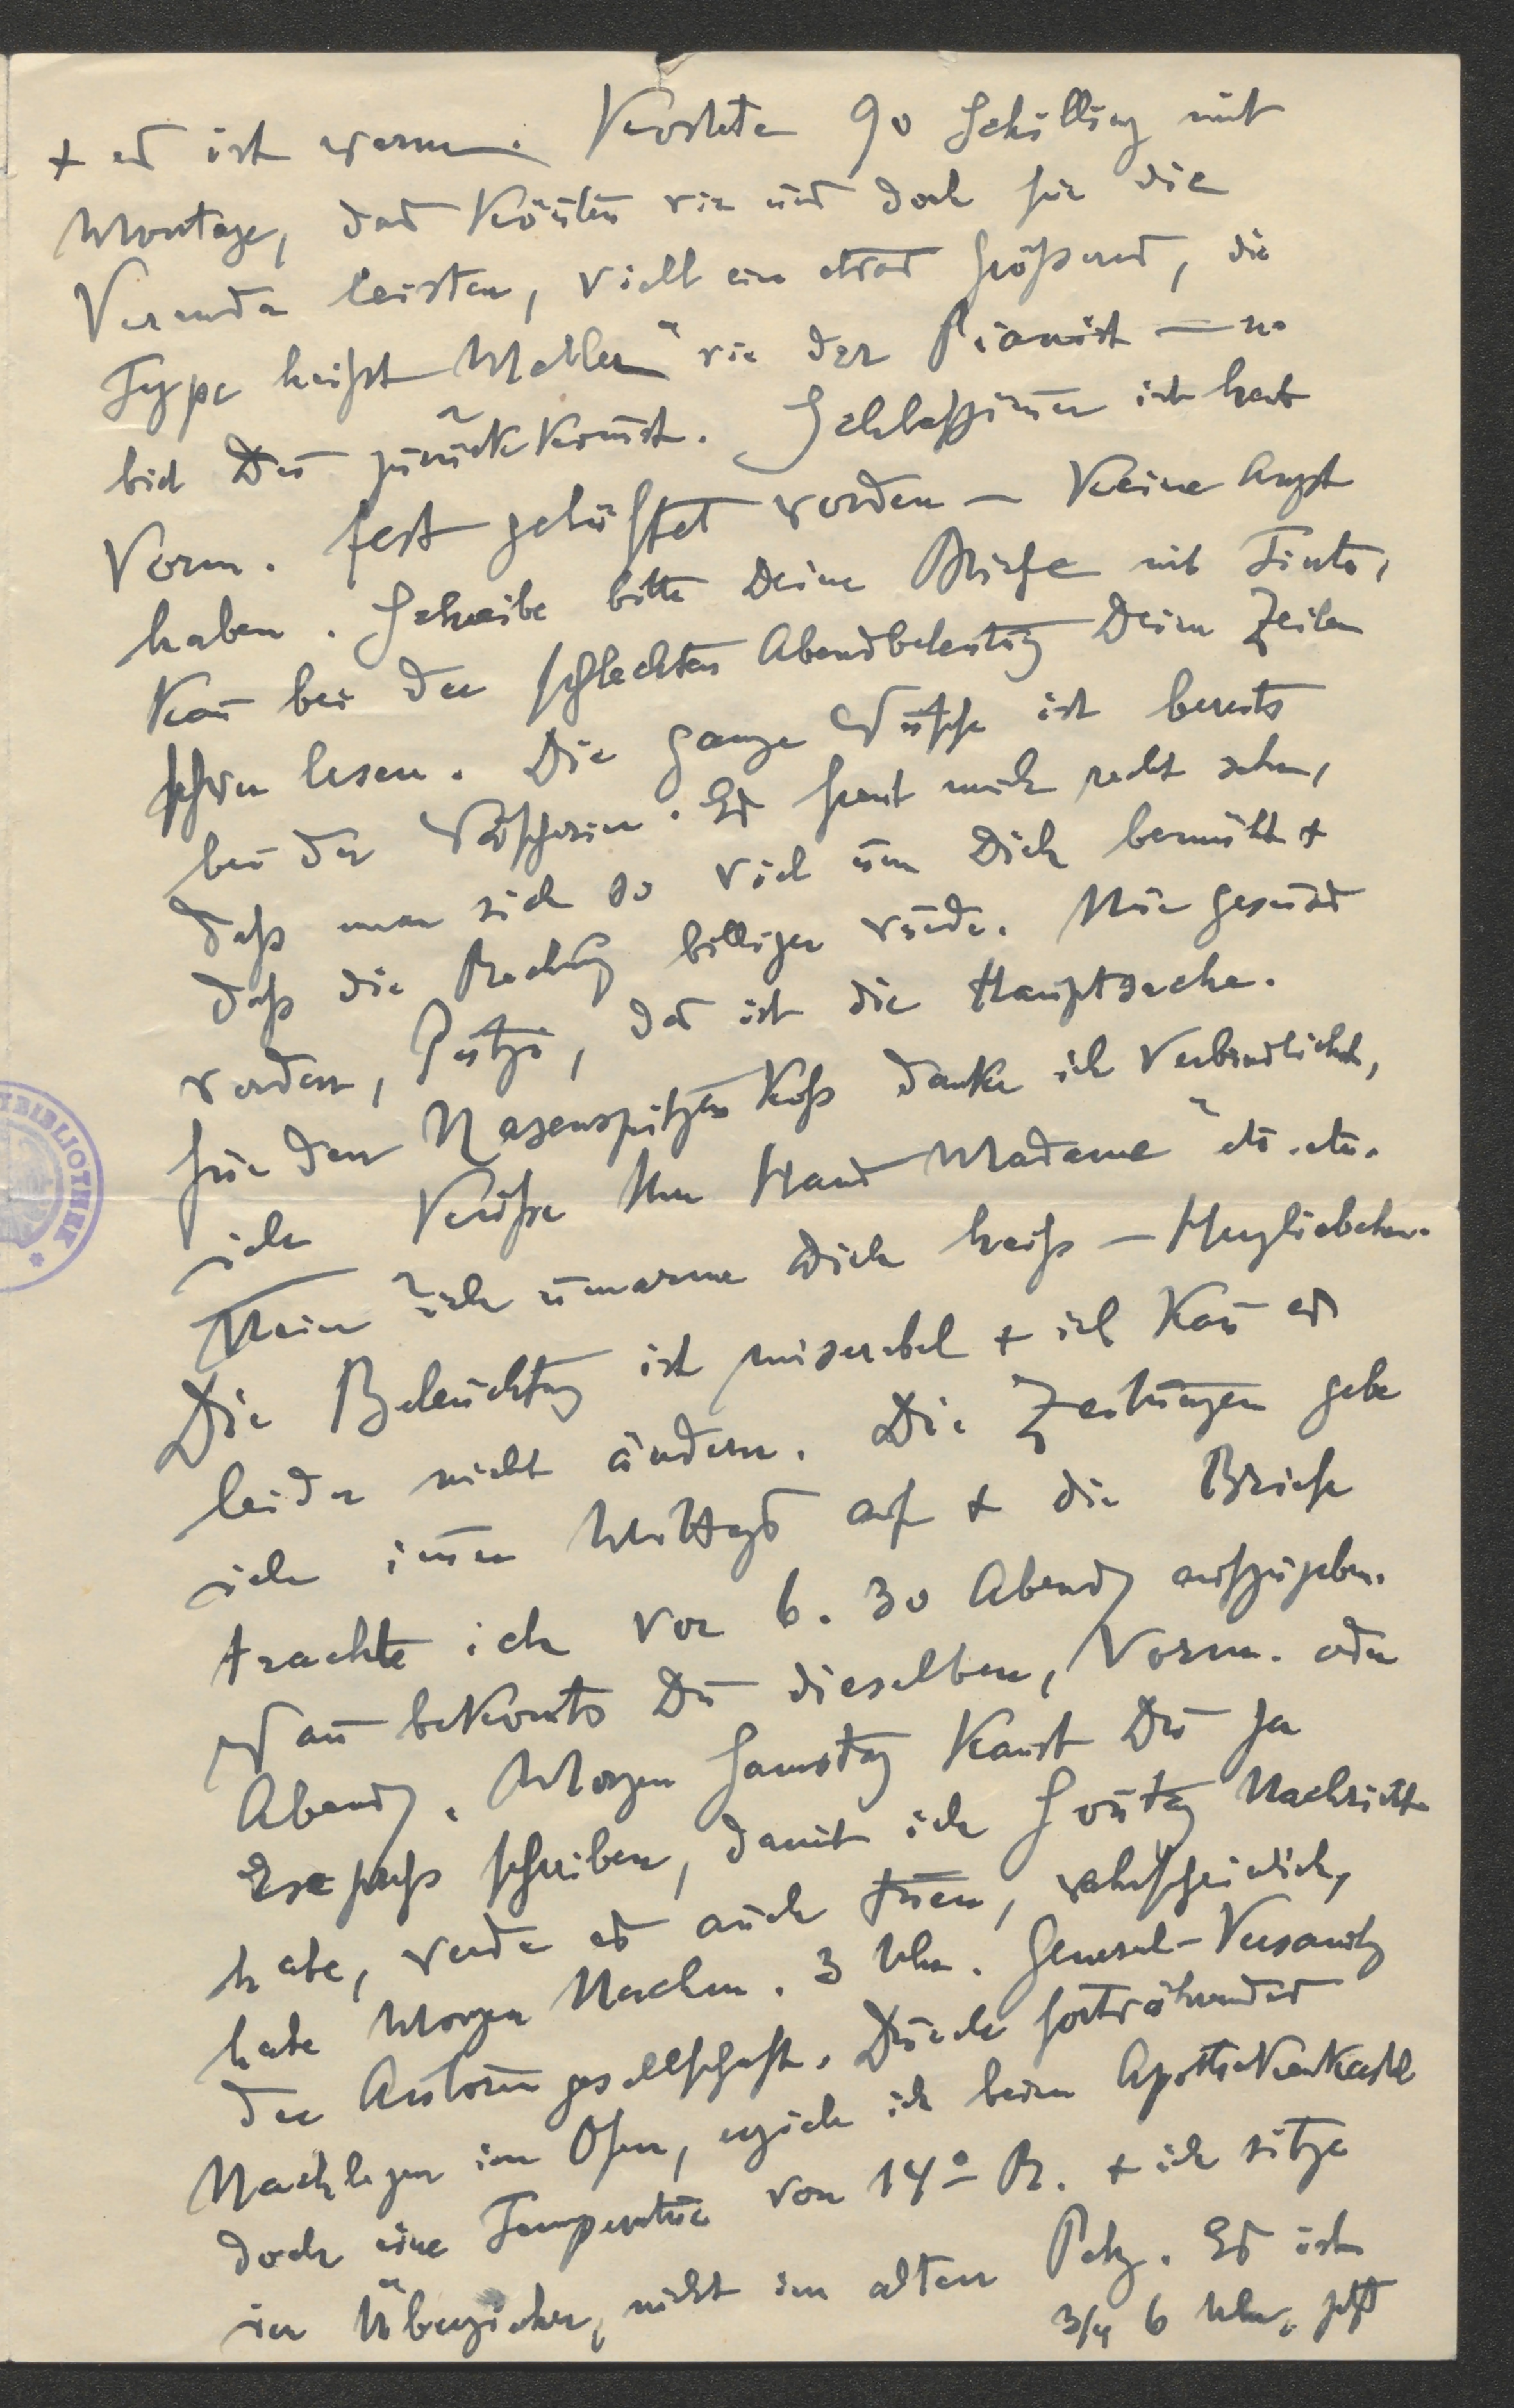 + es ist warm. Kostete 90 Schilling mit
Montage, das könten wir uns doch für die
Veranda leisten, viell ein etwas größeres, die
Type heißt „Meller" wie der Pianist —
bis Du zurückkomst. Schlafzimer ist heute
Vorm. fest gelüftet worden — keine Angst
haben. Schreibe bitte Deine Briefe mit Tinte,
kan bei der schlechten Abendbeleuchtg Deine Zeilen
schwer lesen. Die ganze Wäsche ist bereits
bei der Wäscherin. Es freut mich recht sehr,
daß man sich so viel um Dich bemüht +
daß die Rechnug billiger würde. Nur gesund
werden, Putzi, das ist die Hauptsache.
für den Nasenspitzen Kuß danke ich verbindlichst,
ich „Küsse Ihre Hand Madame" etc. etc.
Nein ich umarme Dich heiß — Herzliebchen.
Die Beleuchtg ist miserabel + ich kan es
leider nicht ändern. Die Zeitungen gebe
ich imer Mittags auf + die Briefe
trachte ich vor 6.30 Abends aufzugeben.
Wan bekomts Du dieselben, Vorm. oder
Abends. Morgen Samstag kanst Du ja
Expreß schreiben, damit ich Sontag Nachricht
habe, werde es auch tuen, wahrscheinlich,
habe Morgen Nachm. 3 Uhr. General-Versamlg
der Autorengesellschaft. Durch fortwährendes
Nachlegen im Ofen, erziele ich beim Apothekenkastl
doch eine Temperatur von 14° R. + ich sitze
im Überzieher, nicht im alten Pelz. Es ist
3/4 6 Uhr, jetzt
BIBLIOTHEK